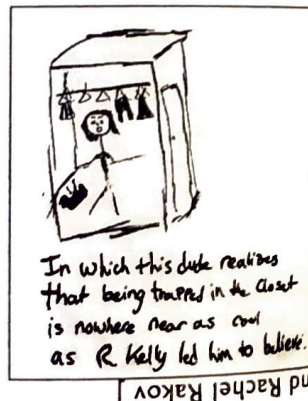 In which this dude realizes
that being trapped in the Closet
is nowhere near as cool
as R. Kelly led him to believe.
nd Rachel Rakov